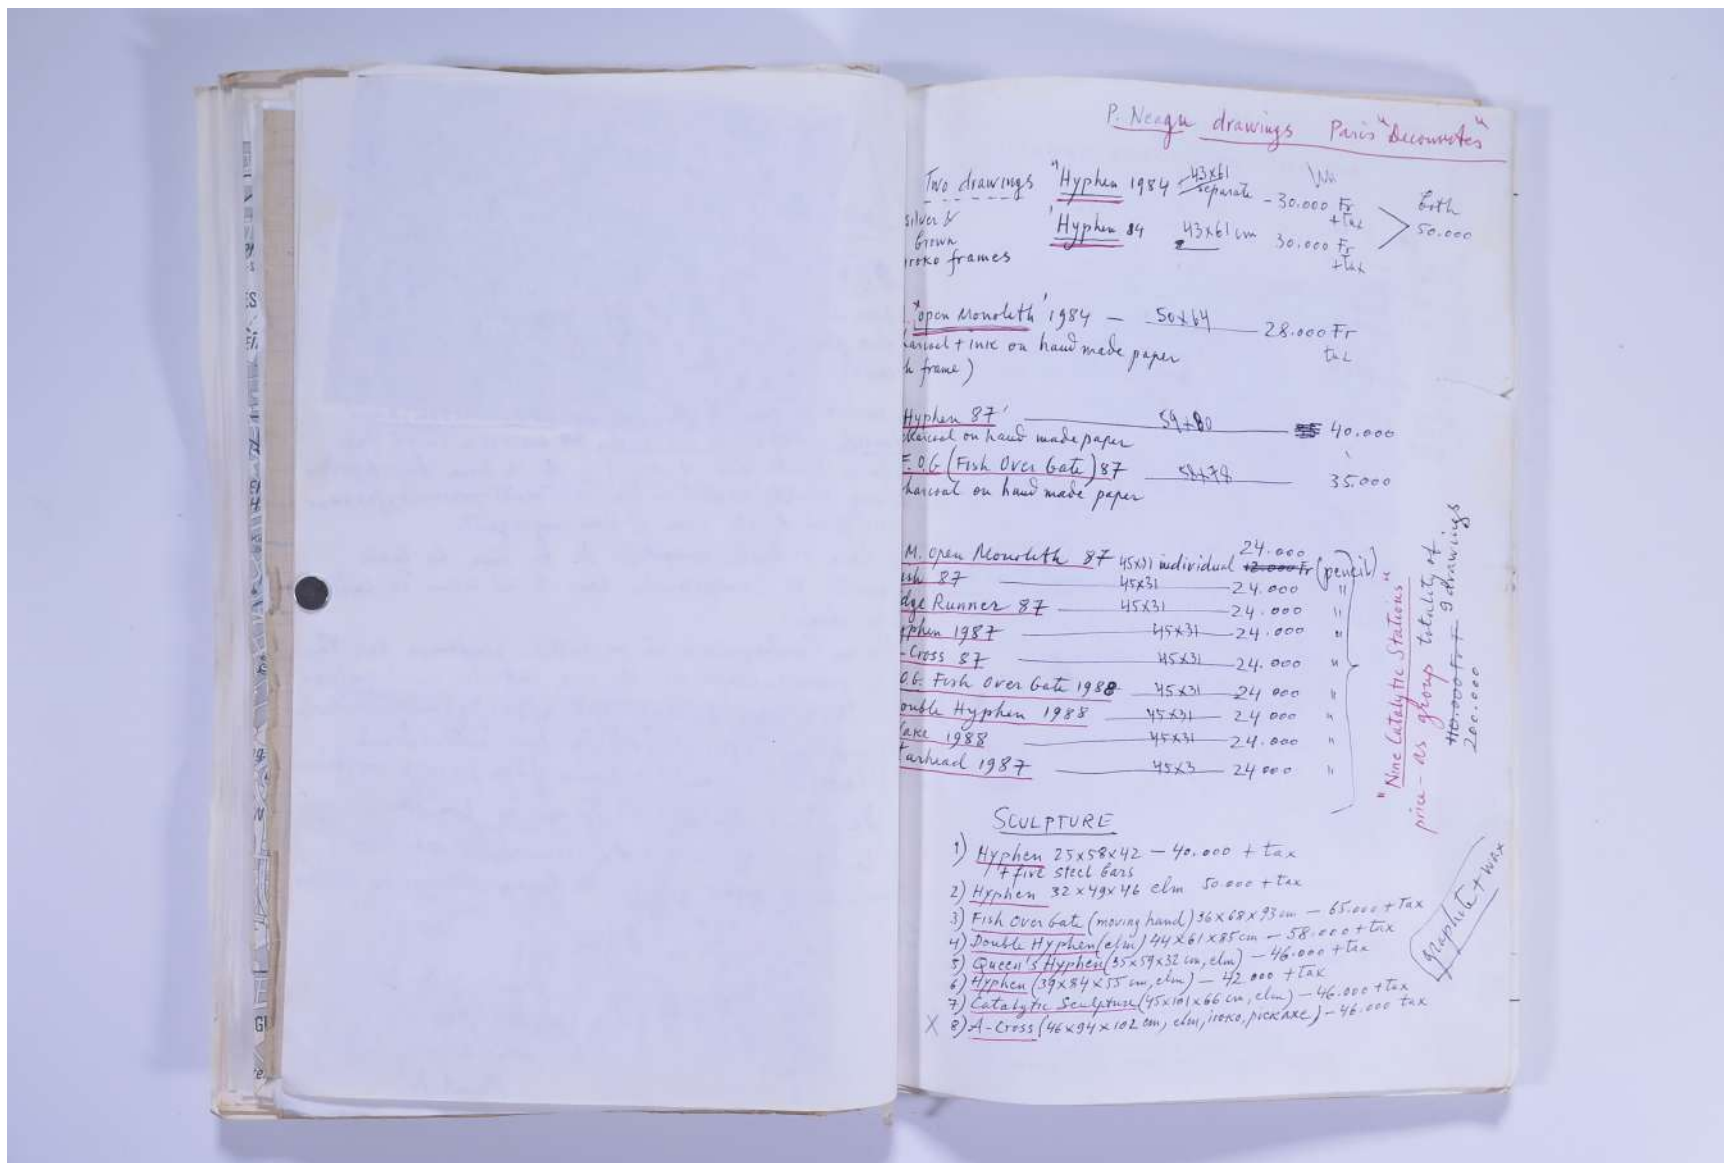 P. Neagu drawings Paris "Decouvertes"
Two drawings "Hyphen 1984 43x61 separate - 30.000 Fr + tax
silver & brown 'Hyphen 84 43x61 cm 30.000 Fr + tax
both 50.000
iroko frames
"open Monoleth' 1984 — 50x64 — 28.000 Fr
harcoal + ink on hand made paper tax
h frame)
Hyphen 87' — 59x80 — 40.000
charcoal on hand made paper
F.O.G (Fish Over Gate) 87 — 58x78 — 35.000
harcoal on hand made paper
M. Open Monoleth 87 45x31 individual 24.000 12.000 Fr (pencil)
ish 87 — 45x31 — 24.000 "
dge Runner 87 — 45x31 — 24.000 "
yphen 1987 — 45x31 — 24.000 "
-Cross 87 — 45x31 — 24.000 "
O.G. Fish Over Gate 1988 — 45x31 — 24 000 "
ouble Hyphen 1988 — 45x31 — 24 000 "
ake 1988 — 45x31 — 24.000 "
tarhead 1987 — 45x3 — 24 000 "
"Nine Catalytic Stations"
price - as group totality of
110.000 Fr F 9 drawings
200.000
SCULPTURE
1) Hyphen 25x58x42 — 40.000 + tax
+ five steel bars
2) Hyphen 32x49x46 elm 50.000 + tax
3) Fish Over Gate (moving hand) 36x68x93 cm — 65.000 + Tax
4) Double Hyphen (elm) 44x61x85 cm — 58.000 + tax
5) Queen's Hyphen (35x59x32 cm, elm) — 46.000 + tax
6) Hyphen (39x84x55 cm, elm) — 42.000 + tax
7) Catalytic Sculpture (45x101x66 cm, elm) — 46.000 + tax
X 8) A-Cross (46x94x102 cm, elm, iroko, pickaxe) — 46.000 tax
graphite + wax